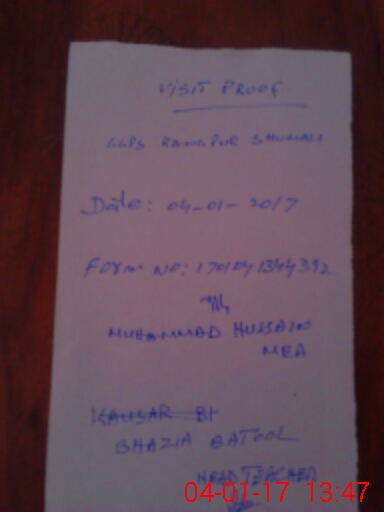 VISIT PROOF
GGPS RANGPUR SHUMALI
Date: 04-01-2017
Form No: 1701041344392
MUHAMMAD HUSSAIN
MEA
KAUSAR BI
SHAZIA BATOOL
HEAD TEACHER
04-01-17 13:47